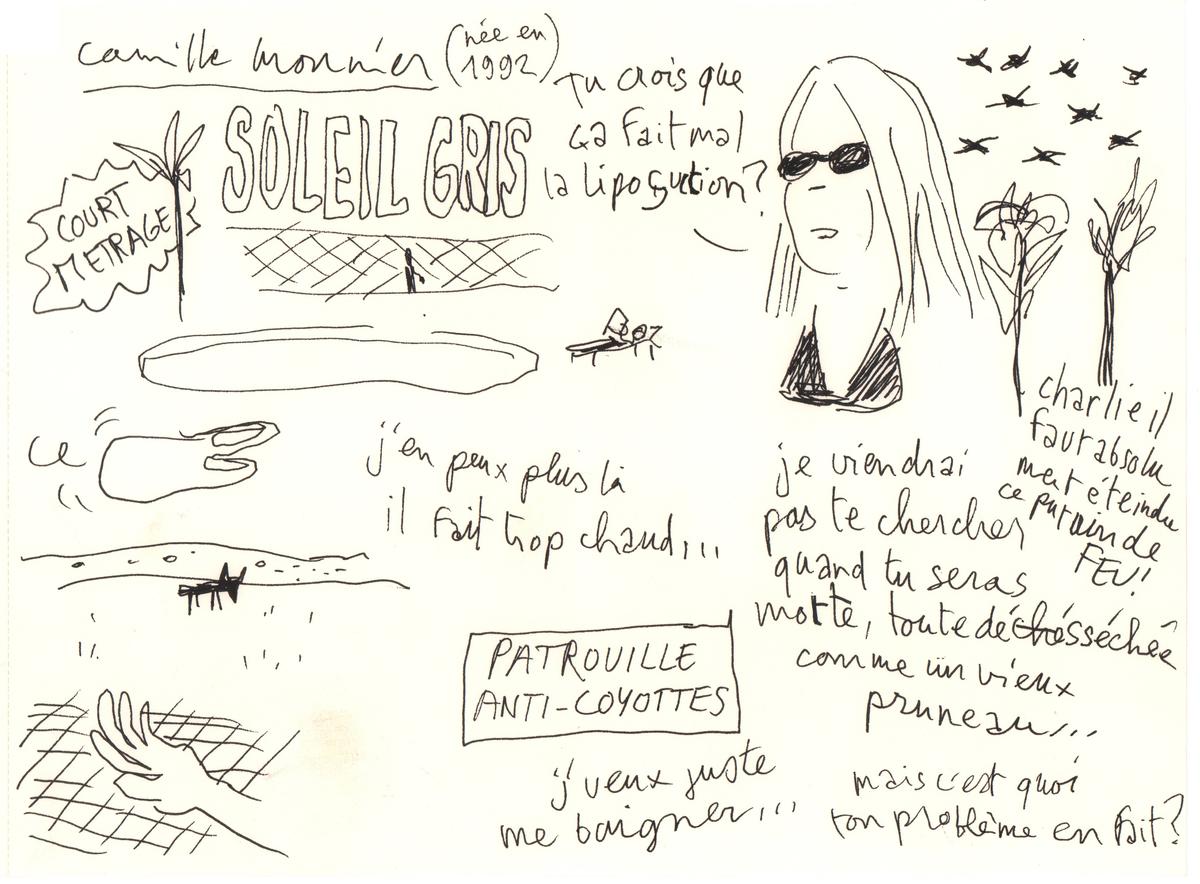 camille monnier (née en 1992)
SOLEIL GRIS
COURT
METRAGE
Tu crois que
ça fait mal
la liposuction ?
ce
j'en peux plus là
il fait trop chaud...
charlie il
faut absolu
ment éteindre
ce putain de
FEU!
je viendrai
pas te chercher
quand tu seras
morte, toute désséchée
comme un vieux
pruneau...
PATROUILLE
ANTI-COYOTTES
j'veux juste
me baigner...
mais c'est quoi
ton problème en fait ?